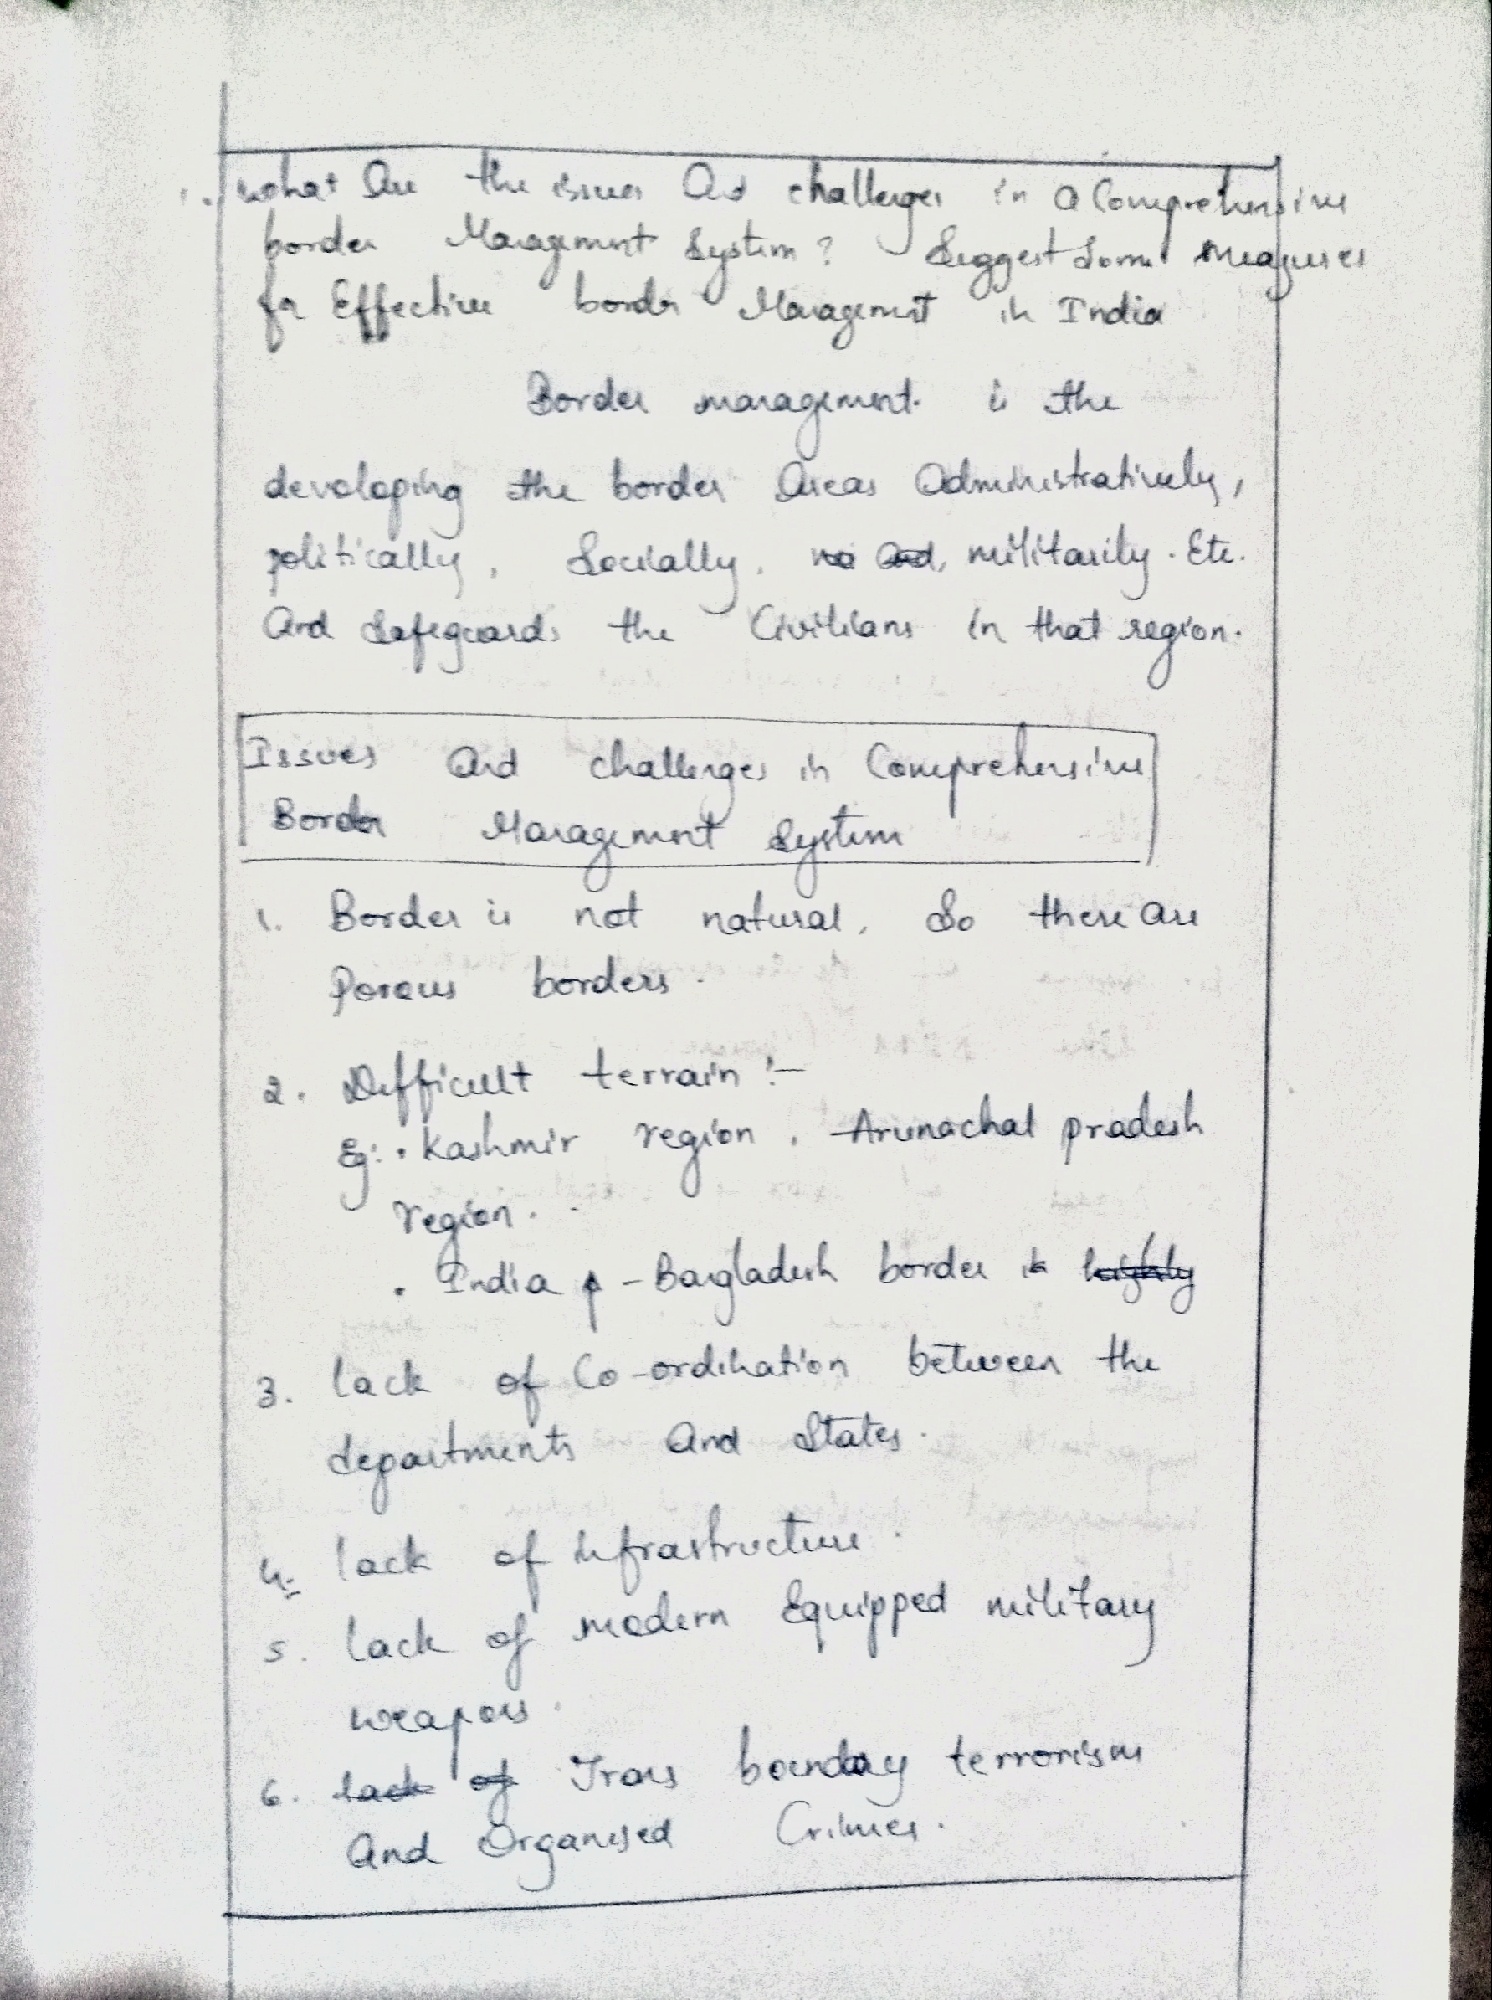 1. What are the issues and challenges in a Comprehensive
border Management System? Suggest some measures
for Effective border Management in India
Border management is the
developing the border areas administratively,
politically, Socially, militarily. Etc.
and safeguards the Civilians in that region.
Issues and challenges in Comprehensive
Border Management System
1. Border is not natural, So there are
Porous borders.
2. Difficult terrain :-
Eg: • Kashmir region, Arunachal pradesh
region.
• India - Bangladesh border is highly
3. lack of Co-ordination between the
departments and States.
4. lack of infrastructure.
5. lack of modern Equipped military
weapons.
6. lack of Trans boundary terrorism
and Organised Crimes.